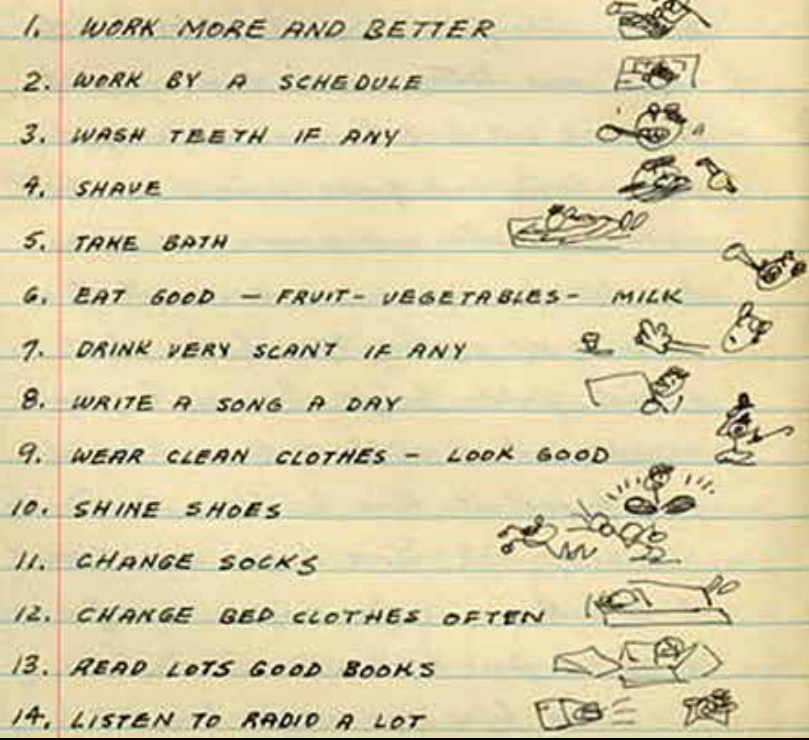 1. WORK MORE AND BETTER
2. WORK BY A SCHEDULE
3. WASH TEETH IF ANY
4. SHAVE
5. TAKE BATH
6. EAT GOOD — FRUIT - VEGETABLES - MILK
7. DRINK VERY SCANT IF ANY
8. WRITE A SONG A DAY
9. WEAR CLEAN CLOTHES — LOOK GOOD
10. SHINE SHOES
11. CHANGE SOCKS
12. CHANGE BED CLOTHES OFTEN
13. READ LOTS GOOD BOOKS
14. LISTEN TO RADIO A LOT